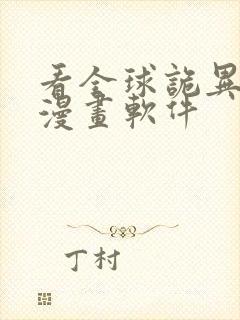 看全球詭異
漫畫軟件
丁村